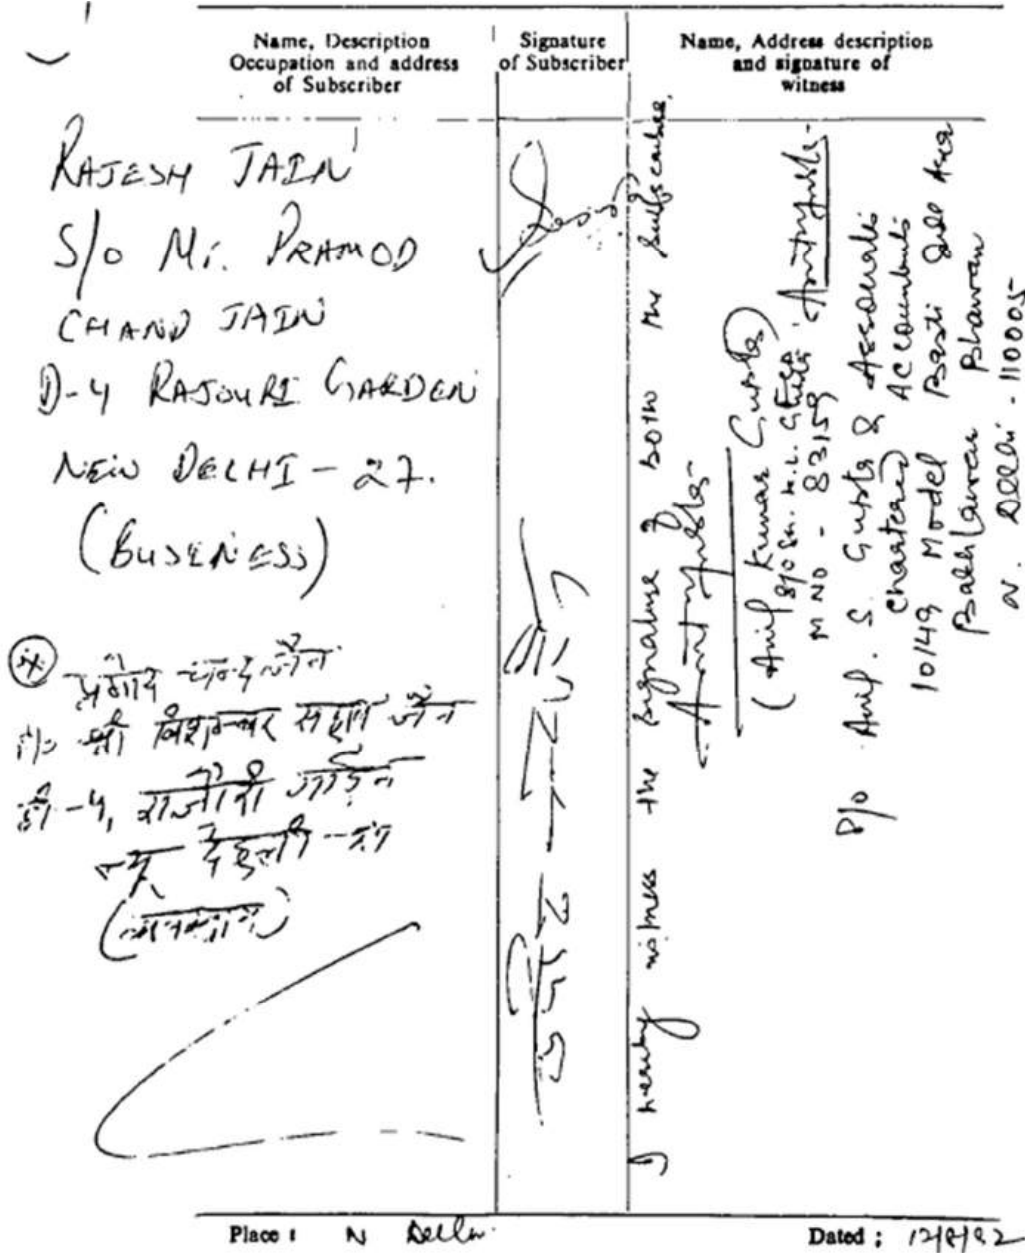 Name, Description
Occupation and address
of Subscriber
Signature
of Subscriber
Name, Address description
and signature of
witness
RAJESH JAIN
S/o Mr. PRAMOD
CHAND JAIN
D-4 RAJOURI GARDEN
NEW DELHI - 27.
(BUSINESS)
प्रमोद चन्द जैन
s/o श्री विशम्बर सहाय जैन
डी-4, राजौरी गार्डन
न्यू देहली-२७
I hereby witness the signature of both the subscribers.
(Anil Kumar Gupta)
S/o Sh. K.L. Gupta
M NO - 83159
P/o Anil. S. Gupta & Associates
Chartered Accountants
10149 Model Basti
Bhawan
N. Delhi - 110005
Place : N Delhi
Dated : 12/8/92